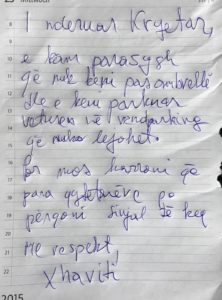 I nderuar Kryetar,
e kam parasysh
që nuk keni pasombrellë
dhe e keni parkuar
veturën në vendparking
që nuk lejohet.
Por mos harroni që
para qytetarëve po
përçoni sinjal të keq
Me respekt,
Xhaviti
2015